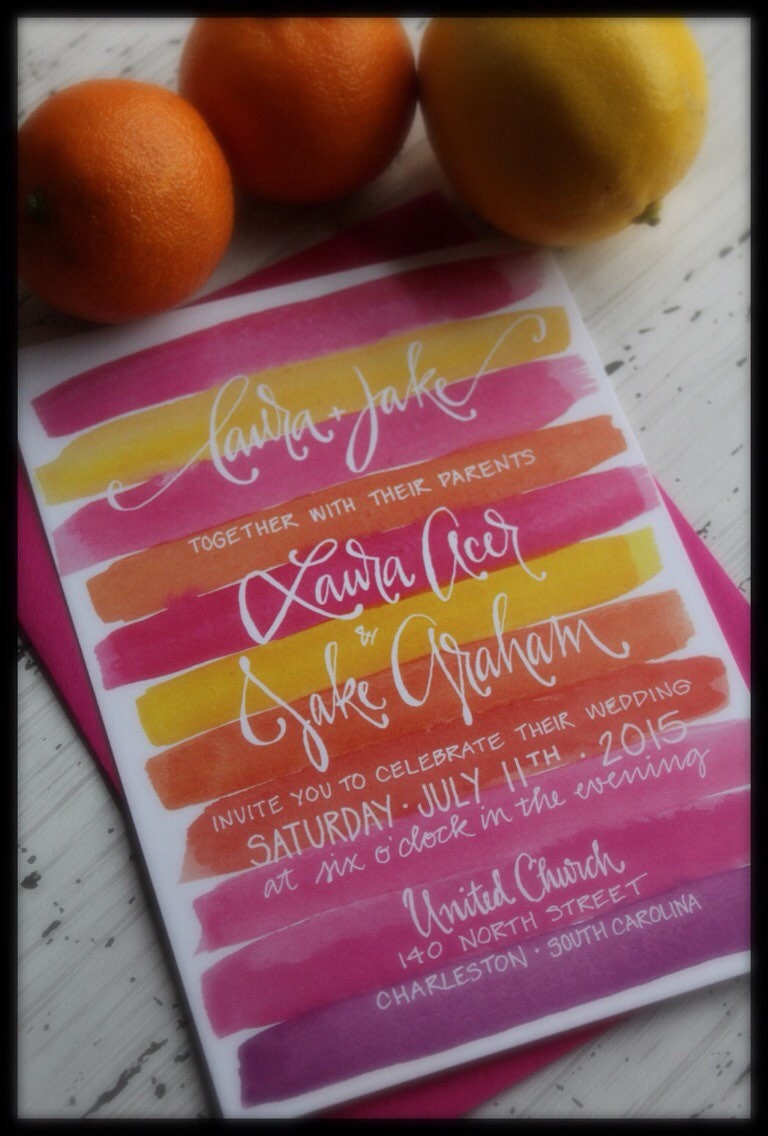 Laura + Jake
TOGETHER WITH THEIR PARENTS
Laura Acer
&
Jake Graham
INVITE YOU TO CELEBRATE THEIR WEDDING
SATURDAY · JULY 11TH · 2015
at six o'clock in the evening
United Church
140 NORTH STREET
CHARLESTON · SOUTH CAROLINA